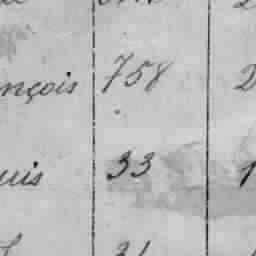 nçois 758 2
uis 33 1
31